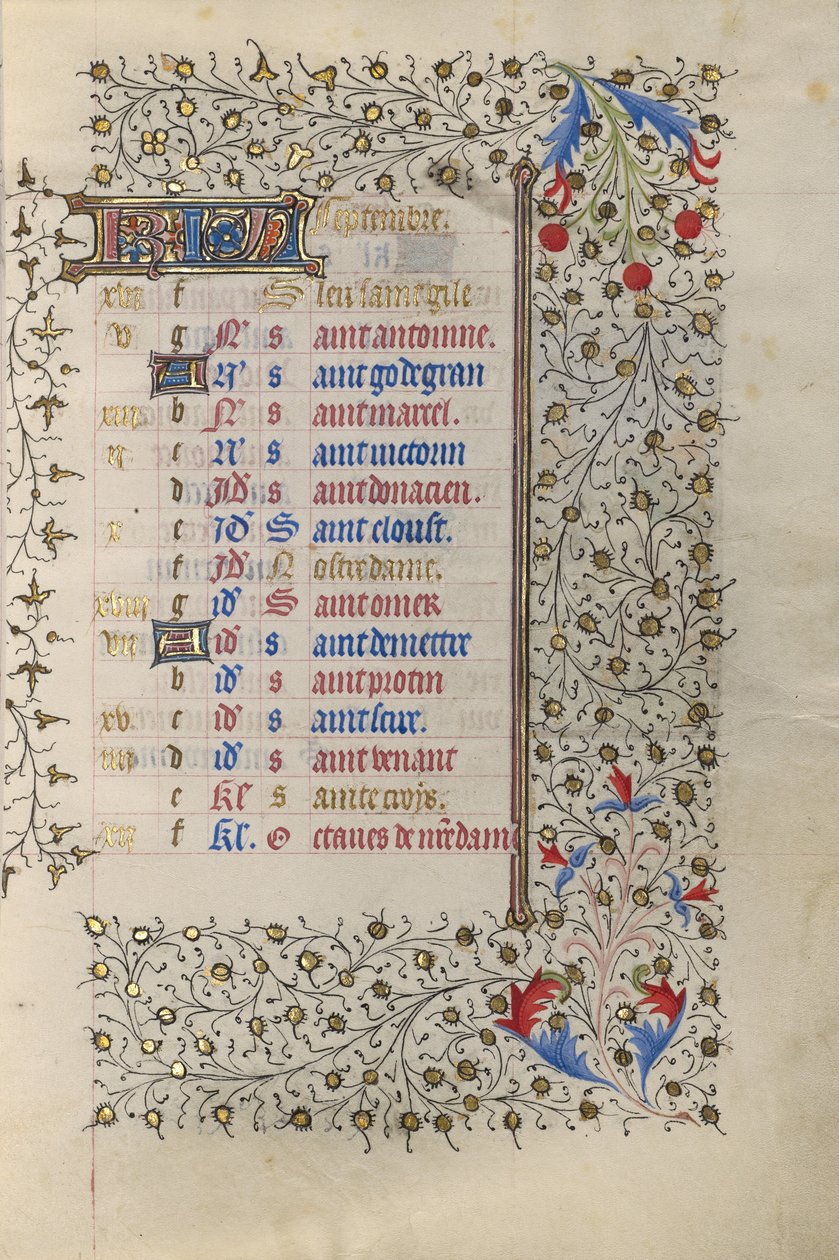 KL Septembre.
xvi f S leu saint gile
v g N s aint antoinne.
A N s aint godegran
xiii b N s aint marcel.
ii c N s aint victorin
d Id s aint donacien.
x e Id S aint cloust.
f Id N ostre dame.
xviii g id S aint omer
vii A id s aint demettre
b id s aint protin
xv. c id s aint
iiii d id s aint venant
e kl s ainte croys.
xii f kl. o ctaues de nr̄e dame